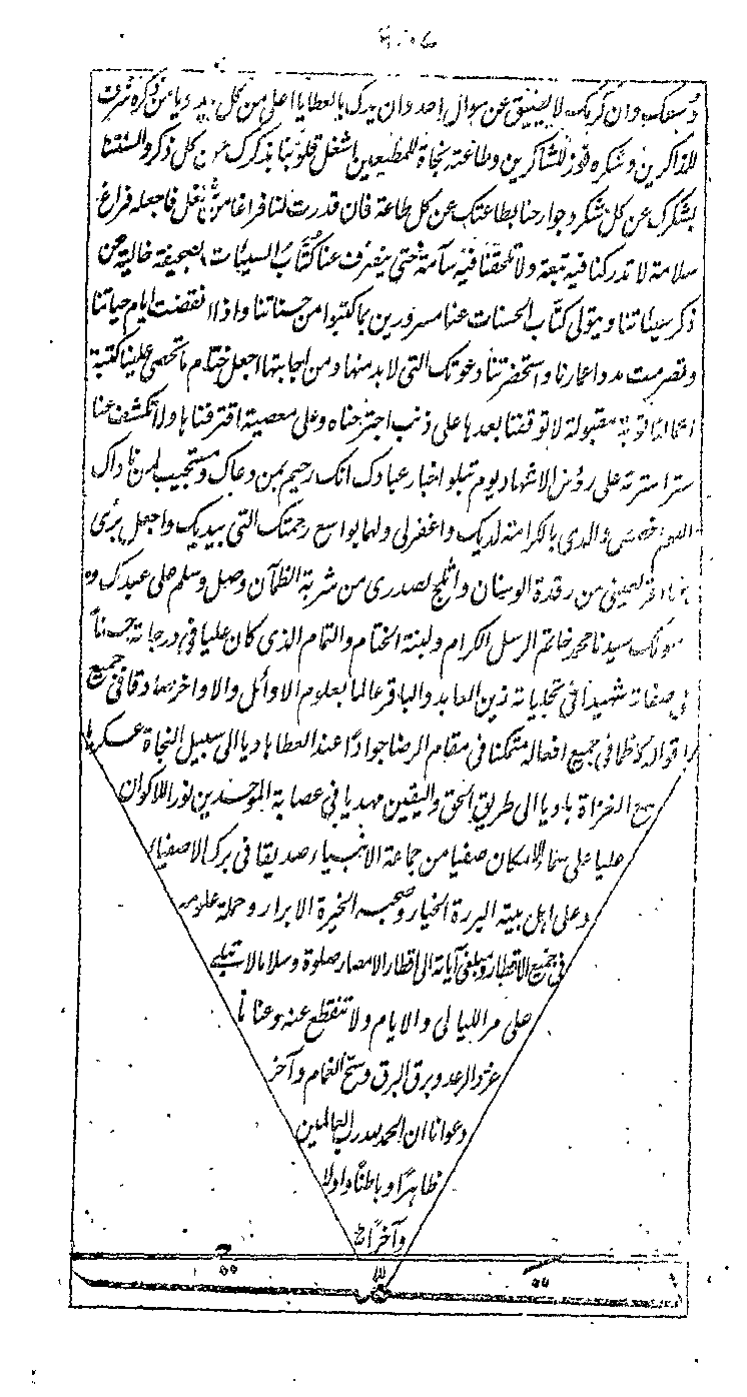 وسعك وان كرمك لا يضيق عن سوال احد وان يدك بالعطايا اعلى من كل يد ويا من ذكره شرف
للذاكرين وشكره فوز للشاكرين وطاعته نجاة للمطيعين اشغل قلوبنا بذكرك عن كل ذكر والسنتنا
بشكرك عن كل شكر وجوارحنا بطاعتك عن كل طاعة فان قدرت لنا فراغا من شغل فاجعله فراغ
سلامة لا تدركنا فيه تبعة ولا تلحقنا فيه سآمة حتى ينصرف عنا كتاب السيئات بصحيفة خالية من
ذكر سيئاتنا ويتولى كتاب الحسنات عنا مسرورين بما كتبوا من حسناتنا واذا انقضت ايام حياتنا
وتصرمت مدد اعمارنا واستحضرتنا دعوتك التي لا بد منها ومن اجابتها اجعل ختام ما تحصى علينا كتبة
اعمالنا توبة مقبولة لا توقفنا بعدها على ذنب اجترحناه وعلى معصية اقترفناها ولا تكشف عنا
سترا سترته على رؤس الاشهاد يوم تبلو اخبار عبادك انك رحيم بمن دعاك ومستجيب لمن ناداك
اللهم اخصص والدى بالكرامة لديك واغفر لى ولهما بواسع رحمتك التي بيديك واجعل برى
بهما اقر لعينى من رقدة الوسنان واثلج لصدرى من شربة الظمآن وصل وسلم على عبدك و
سيدنا محمد خاتم الرسل الكرام ولبنة الختام والتمام الذى كان عليا فى درجاته حسنا
فى صفاته شهيدا فى تجلياته زين العابد والباقر عالما بعلوم الاوائل والاواخر صادقا فى جميع
اقواله كاظما فى جميع افعاله متمكنا فى مقام الرضا جوادا عند العطا هاديا الى سبيل النجاة عسكريا
مع الغزاة هاديا الى طريق الحق واليقين مهديا فى عصابة الموحدين نور الاكوان
عليا على سماء الامكان صفيا من جماعة الانبياء صديقا فى بركة الاصفياء
وعلى اهل بيته البررة الخيار وصحبه الخيرة الابرار وحملة علومه
فى جميع الاقطار ومبلغى آياته الى اقطار الامصار صلوة وسلاما لا تبلى
على مر الليالى والايام ولا تنقطع عنه وعنا ما
غرد الرعد وبرق البرق وسح الغمام وآخر
دعوانا ان الحمد لله رب العالمين
ظاهرا وباطنا واولا
وآخرا